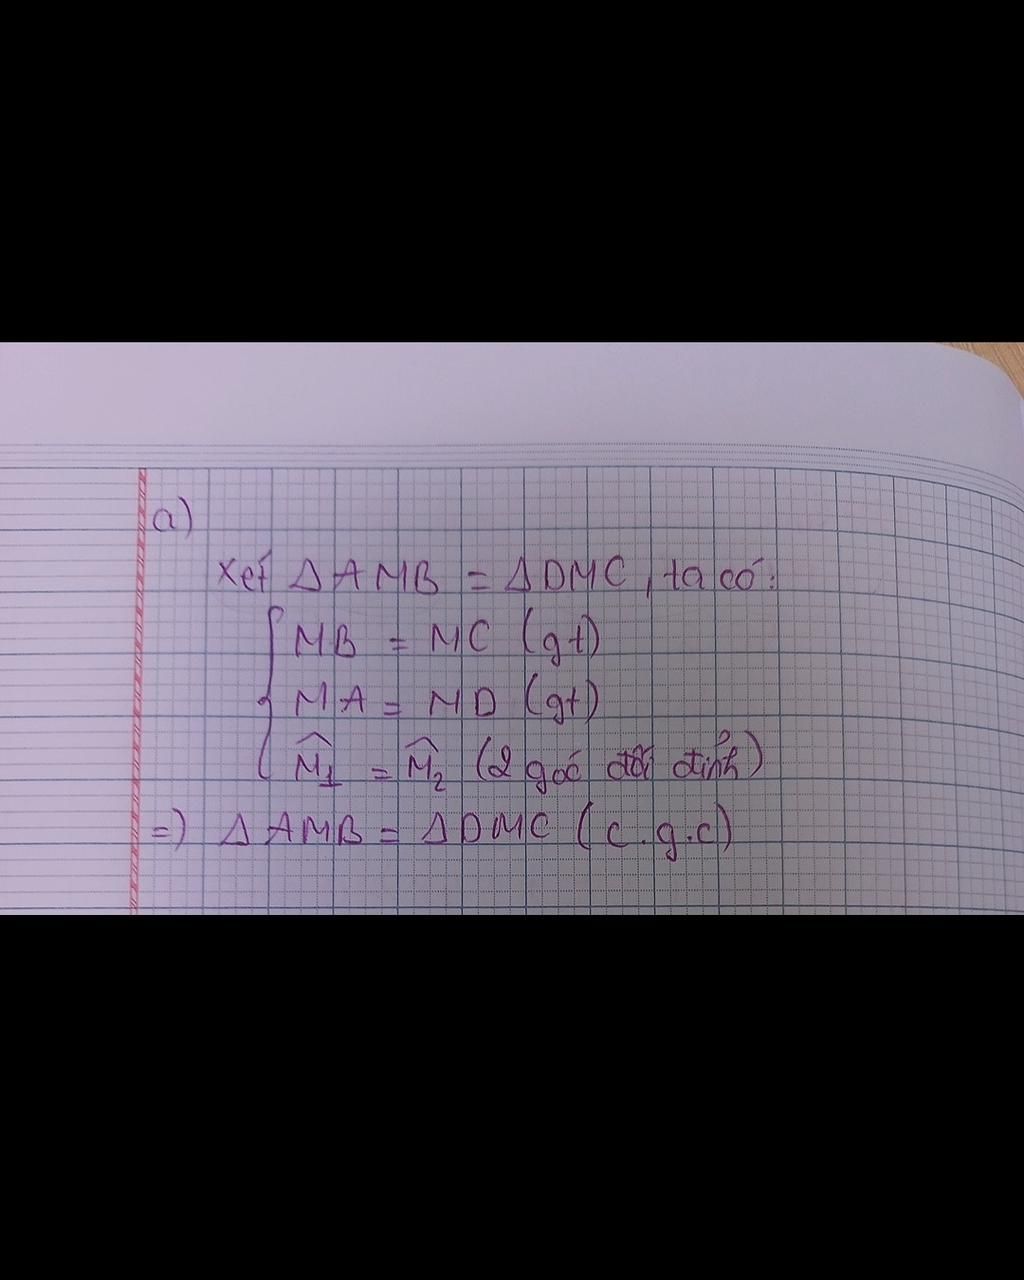 a)
Xét Δ AMB = Δ DMC, ta có:
MB = MC (gt)
MA = MD (gt)
M̂₁ = M̂₂ (2 góc đối đỉnh)
=) Δ AMB = Δ DMC (c.g.c)